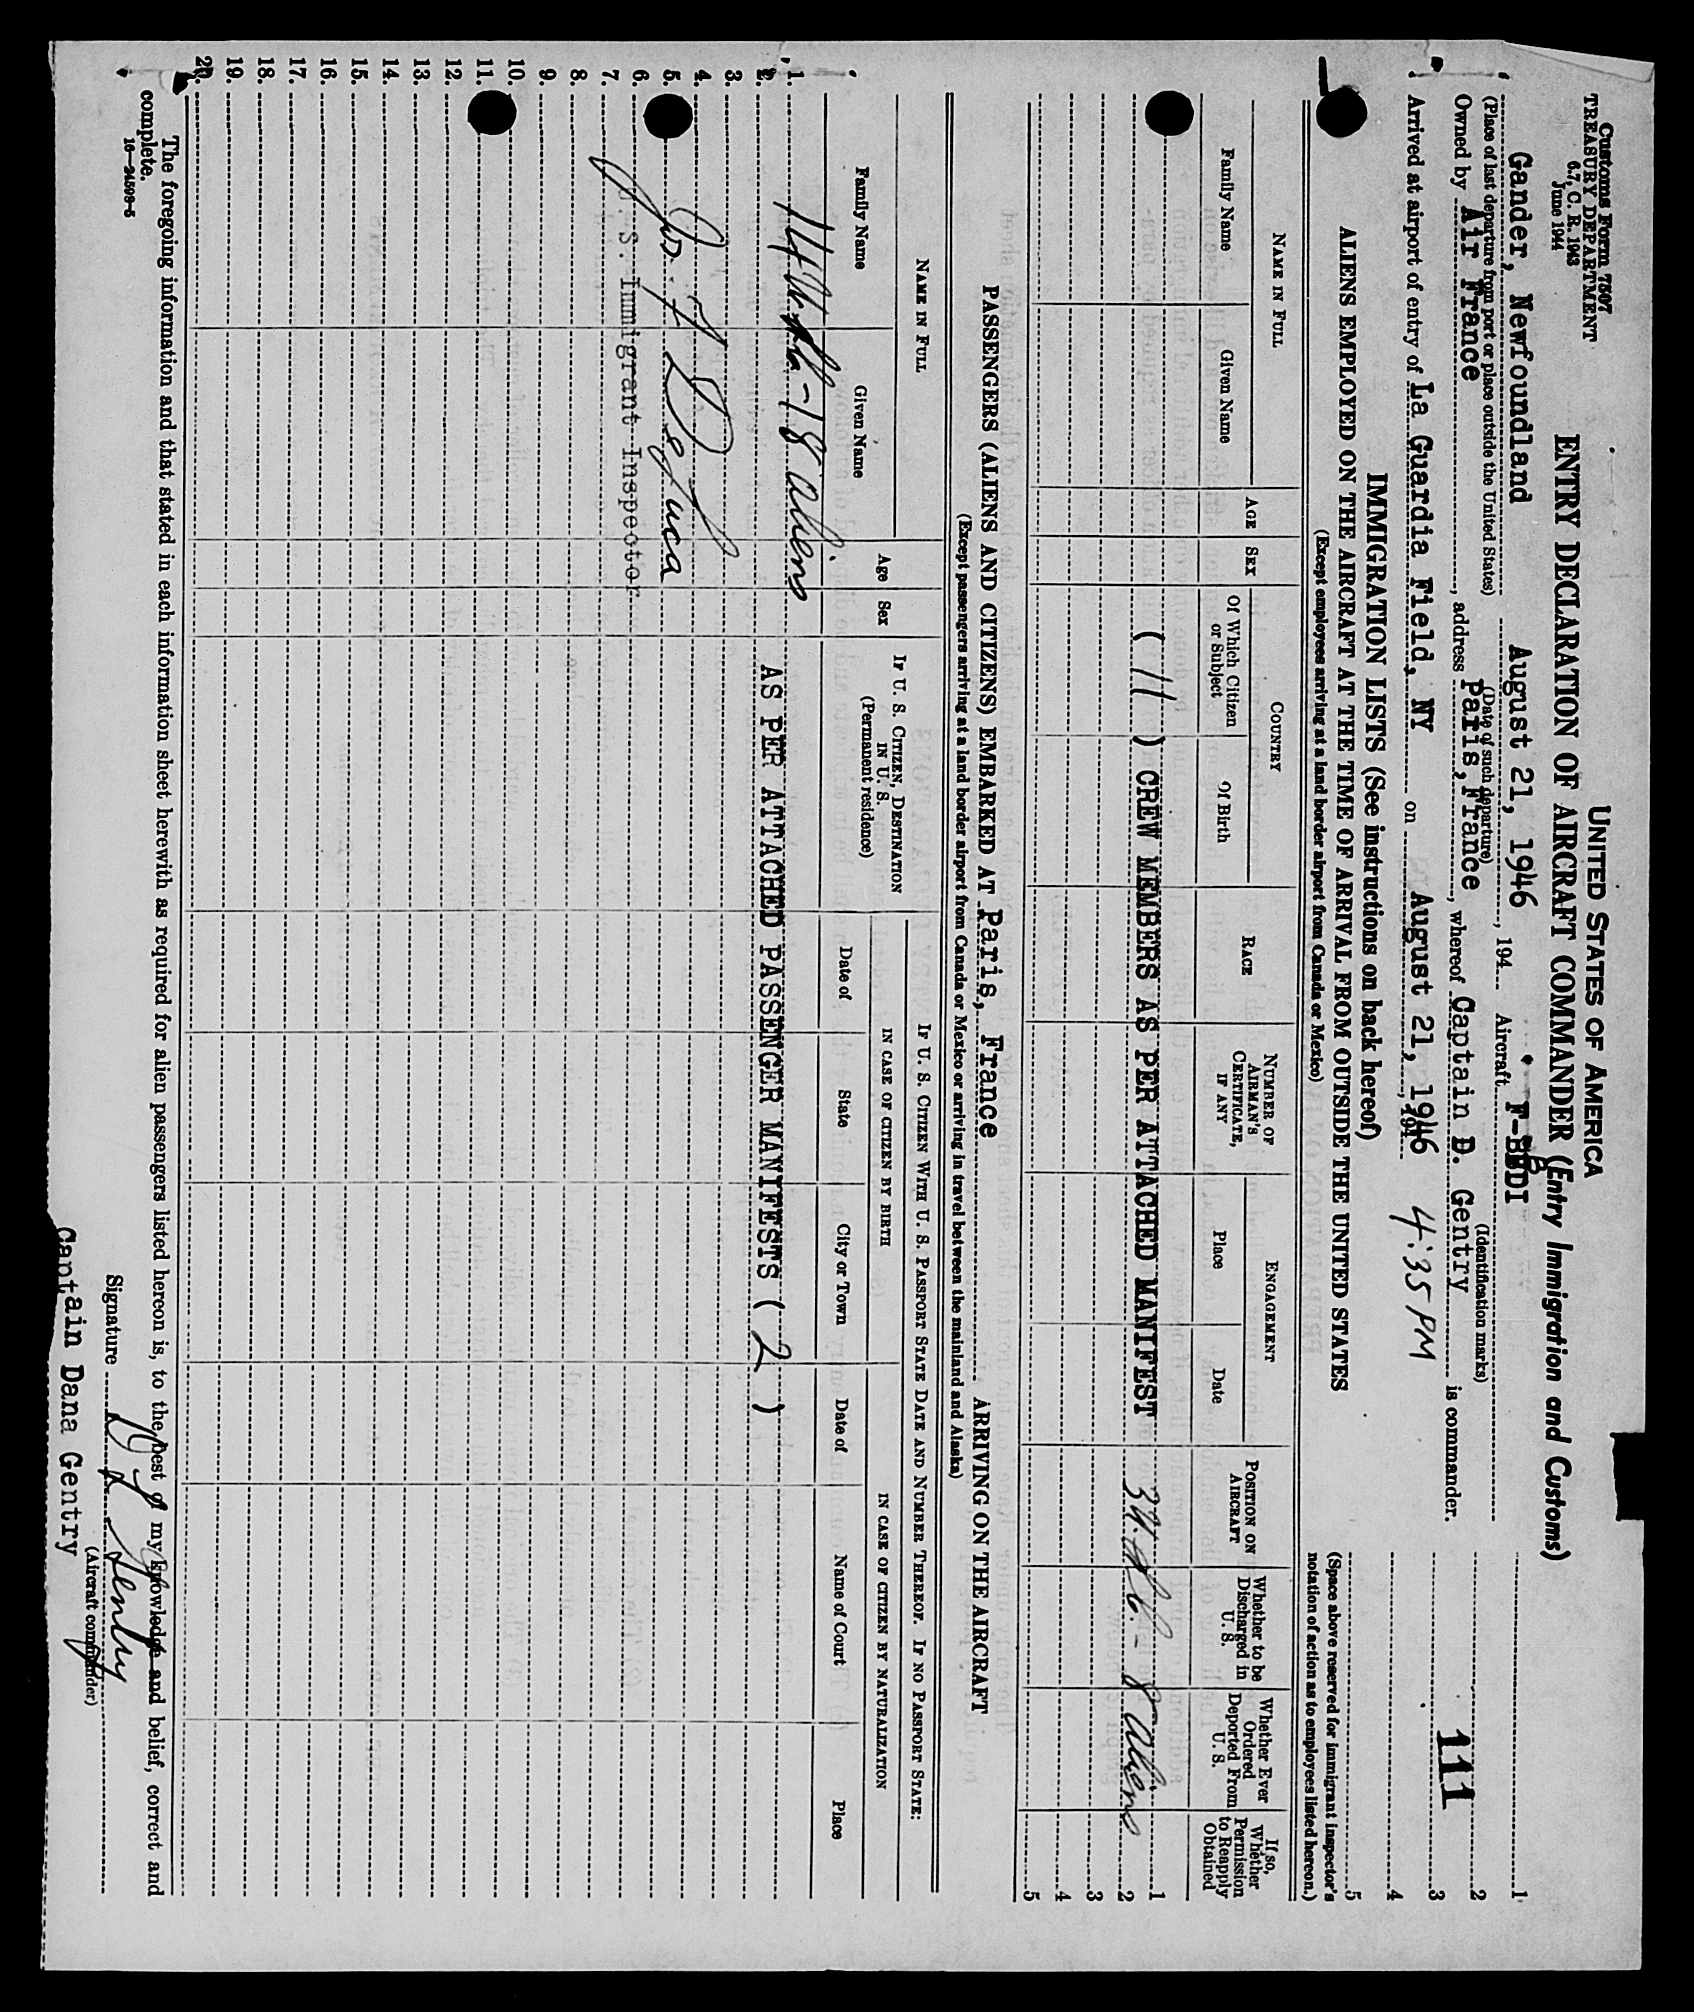 Customs Form 7507
TREASURY DEPARTMENT
6.7, C. R. 1943
June 1944
UNITED STATES OF AMERICA
ENTRY DECLARATION OF AIRCRAFT COMMANDER (Entry Immigration and Customs)
Gander, Newfoundland August 21, 1946, 194 Aircraft F-BBDI
(Place of last departure from port or place outside the United States) (Date of such departure) (Identification marks)
Owned by Air France, address Paris, France, whereof Captain D. Gentry is commander.
Arrived at airport of entry of La Guardia Field, NY on August 21, 1946, 194 4:35 PM
1
2
3
4
5
111
(Space above reserved for immigrant inspector's notation of action as to employees listed hereon.)
IMMIGRATION LISTS (See instructions on back hereof)
ALIENS EMPLOYED ON THE AIRCRAFT AT THE TIME OF ARRIVAL FROM OUTSIDE THE UNITED STATES
(Except employees arriving at a land border airport from Canada or Mexico)
NAME IN FULL
Family Name
Given Name
AGE
SEX
COUNTRY
Of Which Citizen or Subject
Of Birth
RACE
NUMBER OF AIRMAN'S CERTIFICATE, IF ANY
ENGAGEMENT
Place
Date
POSITION ON AIRCRAFT
Whether to be Discharged in U. S.
Whether Ever Ordered Deported From U. S.
If so, Whether Permission to Reapply Obtained
( 11 ) CREW MEMBERS AS PER ATTACHED MANIFEST
8 aliens
1
2
3
4
5
PASSENGERS (ALIENS AND CITIZENS) EMBARKED AT Paris, France ARRIVING ON THE AIRCRAFT
(Except passengers arriving at a land border airport from Canada or Mexico or arriving in travel between the mainland and Alaska)
NAME IN FULL
Family Name
Given Name
Age
Sex
IF U. S. CITIZEN, DESTINATION IN U. S.
(Permanent residence)
IF U. S. CITIZEN WITH U. S. PASSPORT STATE DATE AND NUMBER THEREOF. IF NO PASSPORT STATE:
IN CASE OF CITIZEN BY BIRTH
IN CASE OF CITIZEN BY NATURALIZATION
Date of
State
City or Town
Date of
Name of Court
Place
1.
18 aliens
2. AS PER ATTACHED PASSENGER MANIFESTS ( 2 )
3.
4.
5. Jos. F. DeLuca
6. U. S. Immigrant Inspector
7.
8.
9.
10.
11.
12.
13.
14.
15.
16.
17.
18.
19.
20.
The foregoing information and that stated in each information sheet herewith as required for alien passengers listed hereon is, to the best of my knowledge and belief, correct and
complete.
16—24598-5
Signature
(Aircraft commander)
Captain Dana Gentry